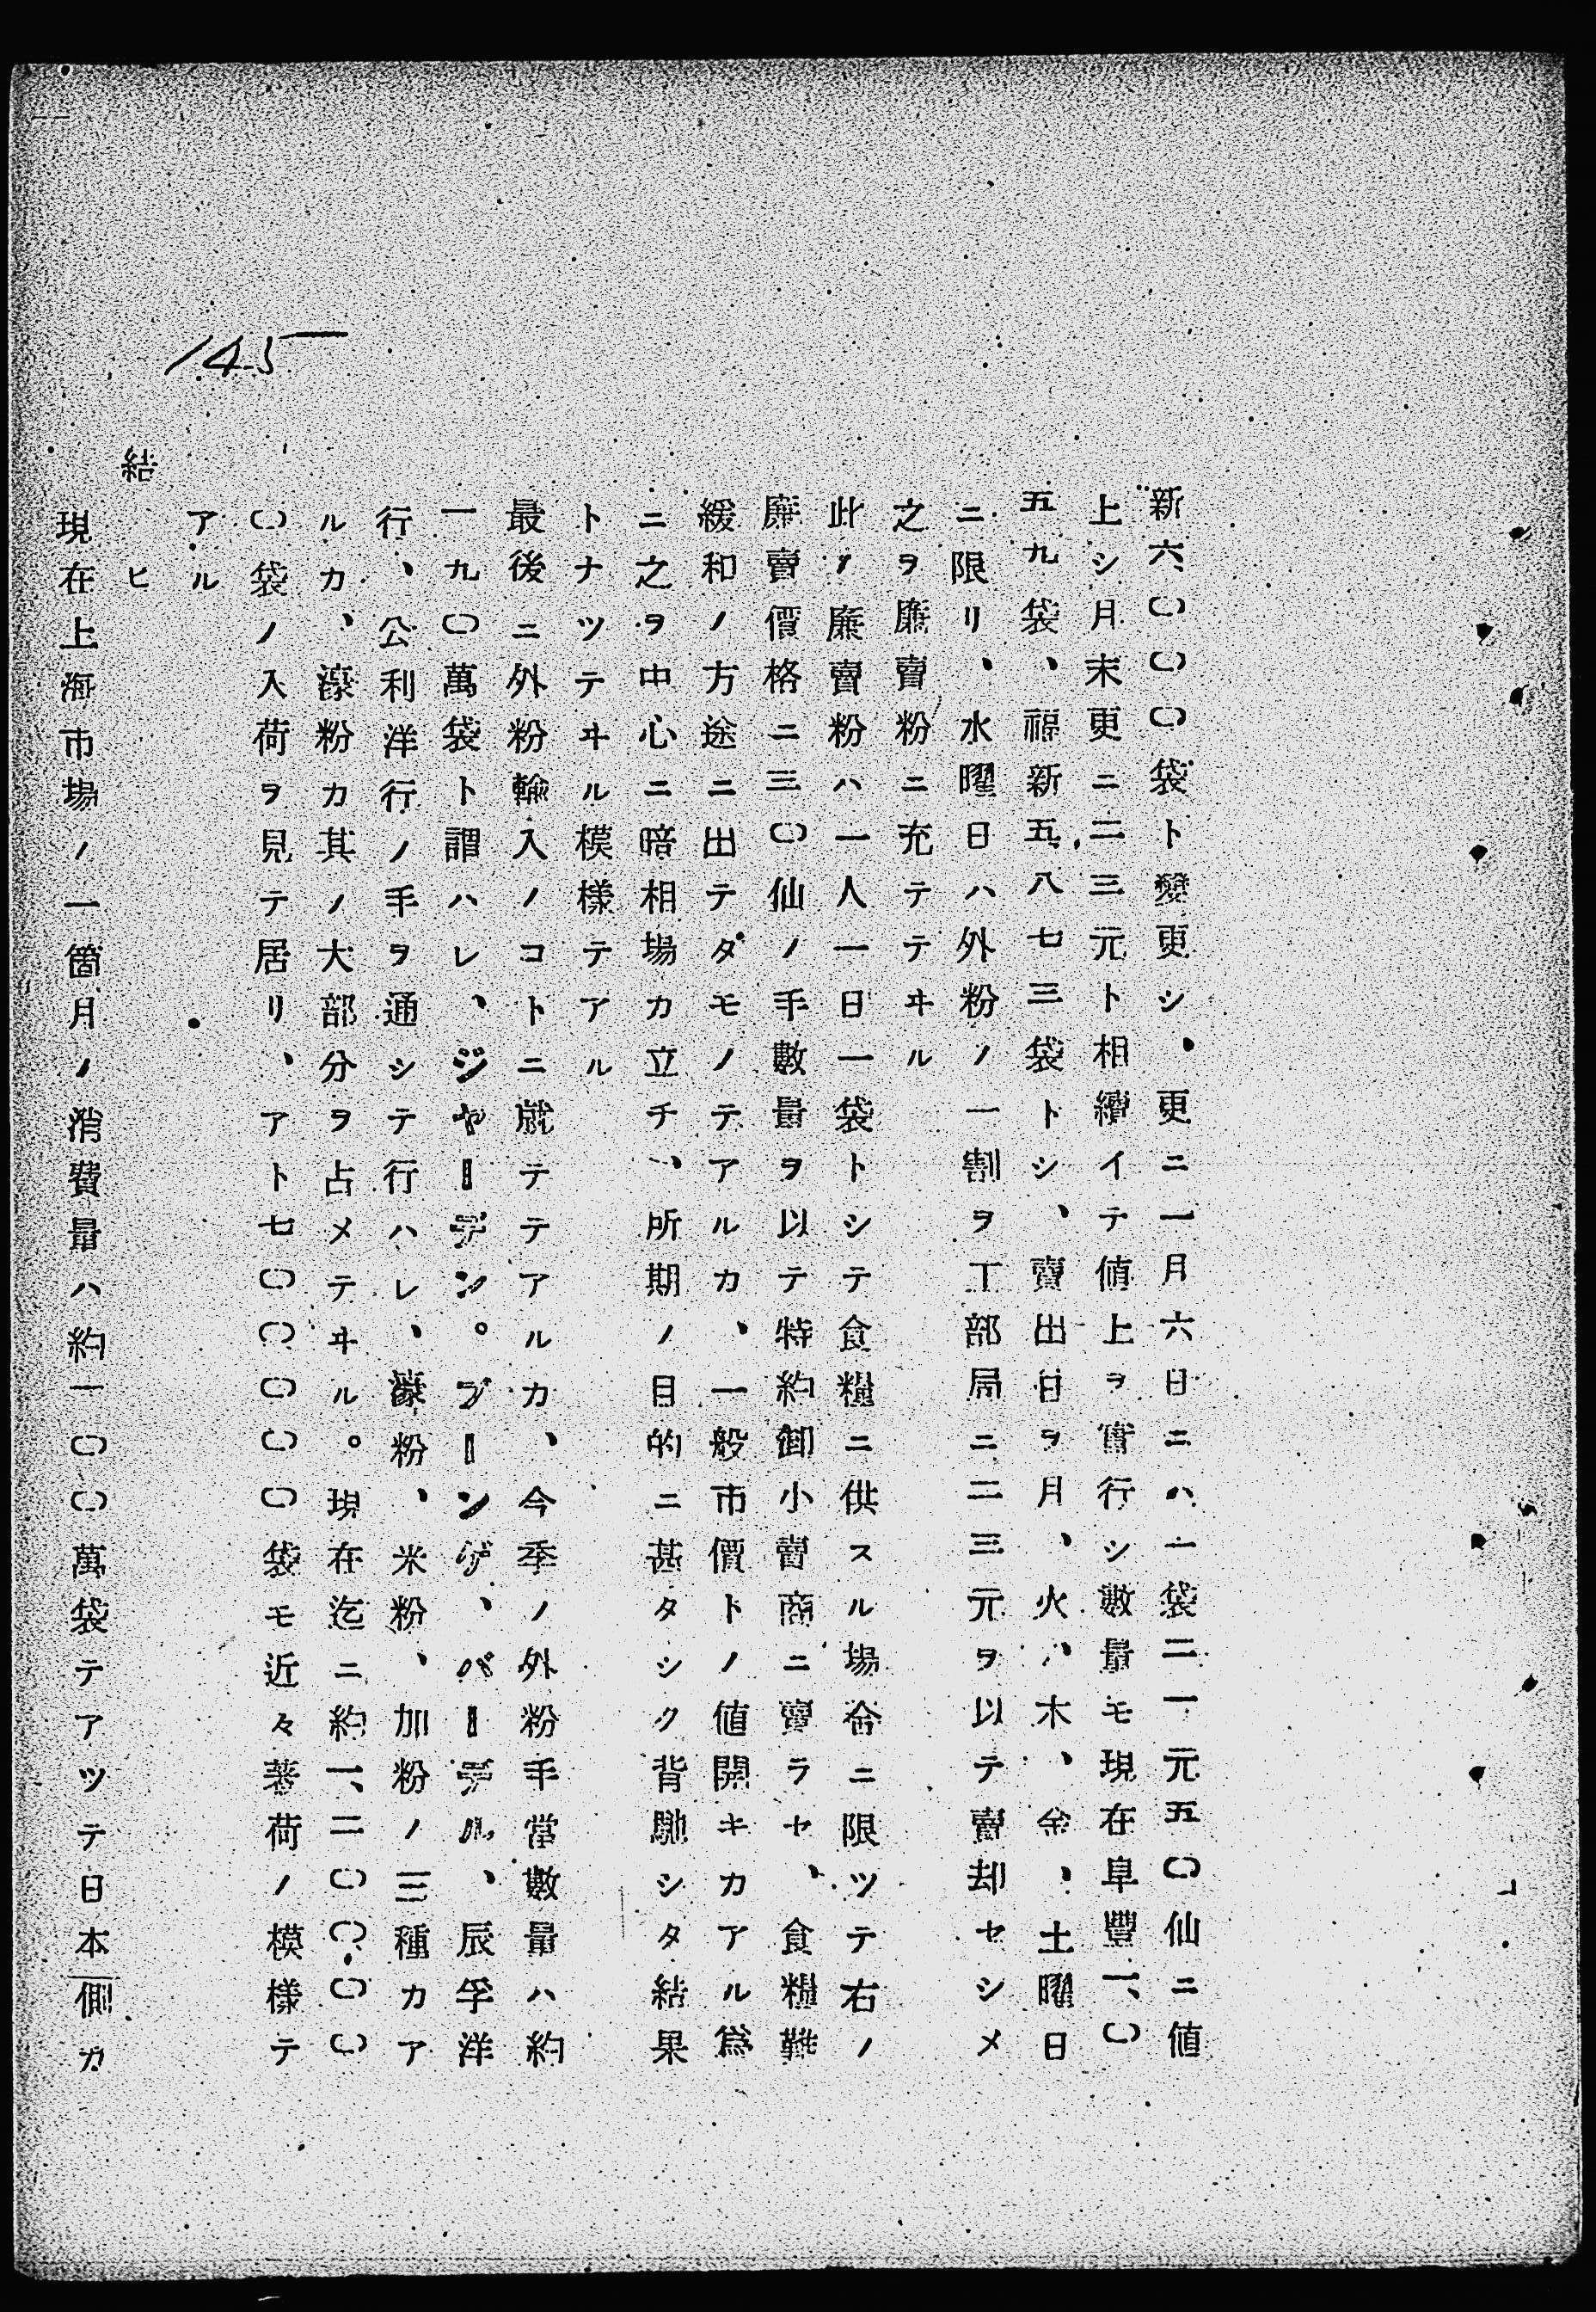 145
新六〇〇〇袋ト變更シ、更ニ一月六日ニハ一袋二一元五〇仙ニ値
上シ月末更ニ二三元ト相續イテ値上ヲ實行シ數量モ現在阜豐一、〇
五九袋、福新五八七三袋トシ、賣出日ヲ月、火、木、金、土曜日
ニ限リ、水曜日ハ外粉ノ一割ヲ工部局ニ二三元ヲ以テ賣却セシメ
之ヲ廉賣粉ニ充テテヰル
此ノ廉賣粉ハ一人一日一袋トシテ食糧ニ供スル場合ニ限ツテ右ノ
廉賣價格ニ三〇仙ノ手數量ヲ以テ特約卸小賣商ニ賣ラセ、食糧難
緩和ノ方途ニ出テタモノテアルカ、一般市價トノ値開キカアル爲
ニ之ヲ中心ニ暗相場カ立チ、所期ノ目的ニ甚タシク背馳シタ結果
トナツテヰル模樣テアル
最後ニ外粉輸入ノコトニ就テテアルカ、今季ノ外粉手當數量ハ約
一九〇萬袋ト謂ハレ、ジヤーデン。ブーンゲ、バーデル、辰孚洋
行、公利洋行ノ手ヲ通シテ行ハレ、濠粉、米粉、加粉ノ三種カア
ルカ、濠粉カ其ノ大部分ヲ占メテヰル。現在迄ニ約一、二〇〇〇〇
〇袋ノ入荷ヲ見テ居リ、アト七〇〇〇〇〇袋モ近々著荷ノ模樣テ
アル
結ヒ
現在上海市場ノ一箇月ノ消費量ハ約一〇〇萬袋テアツテ日本側カ